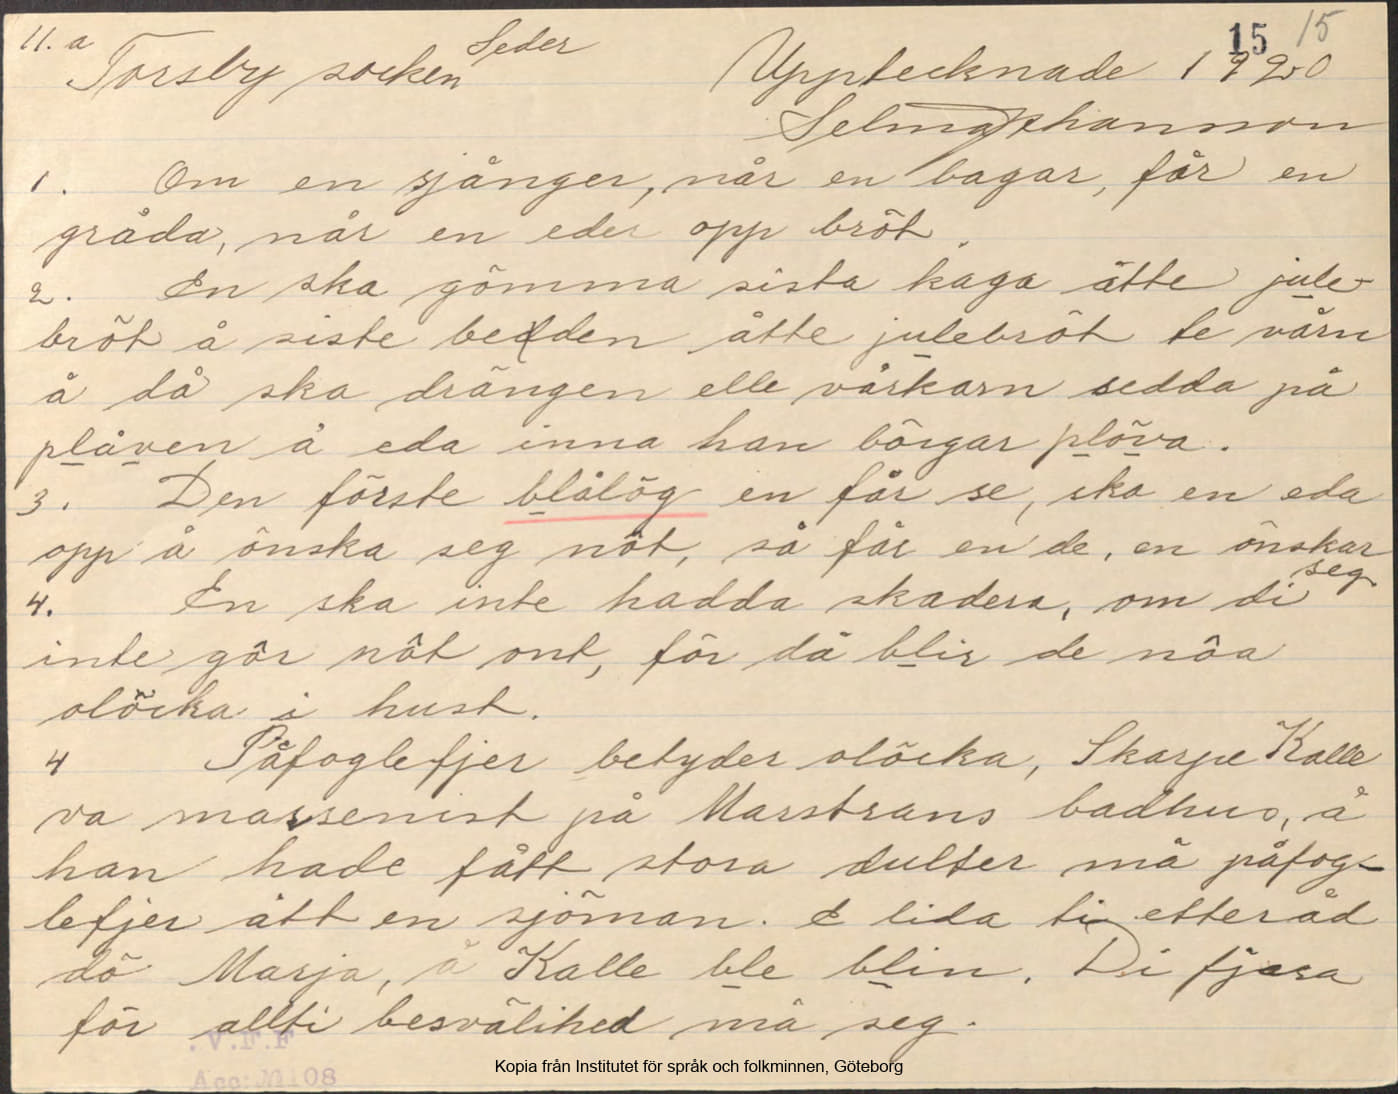 11. a
Torsby socken Seder
15 15
Upptecknade 1920
Selma Johansson
1. Om en sjånger, når en bagar, får en
gråda, når en eder opp bröt.
2. En ska gömma sista kaga åtte jule-
bröt å siste bedden åtte julebröt te vårn
å då ska drängen elle vårkarn sedda på
plåven å eda inna han börgar plöva.
3. Den förste blålög en får se, ska en eda
opp å önska seg nôt, så får en de, en önskar
seg
4. En ska inte hadda skadera, om di
inte gör nôt ont, för då blir de nôa
olöcka i hust.
4 Påfoglefjer betyder olöcka, Skarpe Kalle
va massenist på Marstrans badhus, å
han hade fått stora dulter må påfog-
lefjer ått en sjöman. E lida ti etteråd
dö Marja, å Kalle ble blin. Di fjera
för allti besvälihed må seg.
.V.F.F
Acc: №108
Kopia från Institutet för språk och folkminnen, Göteborg